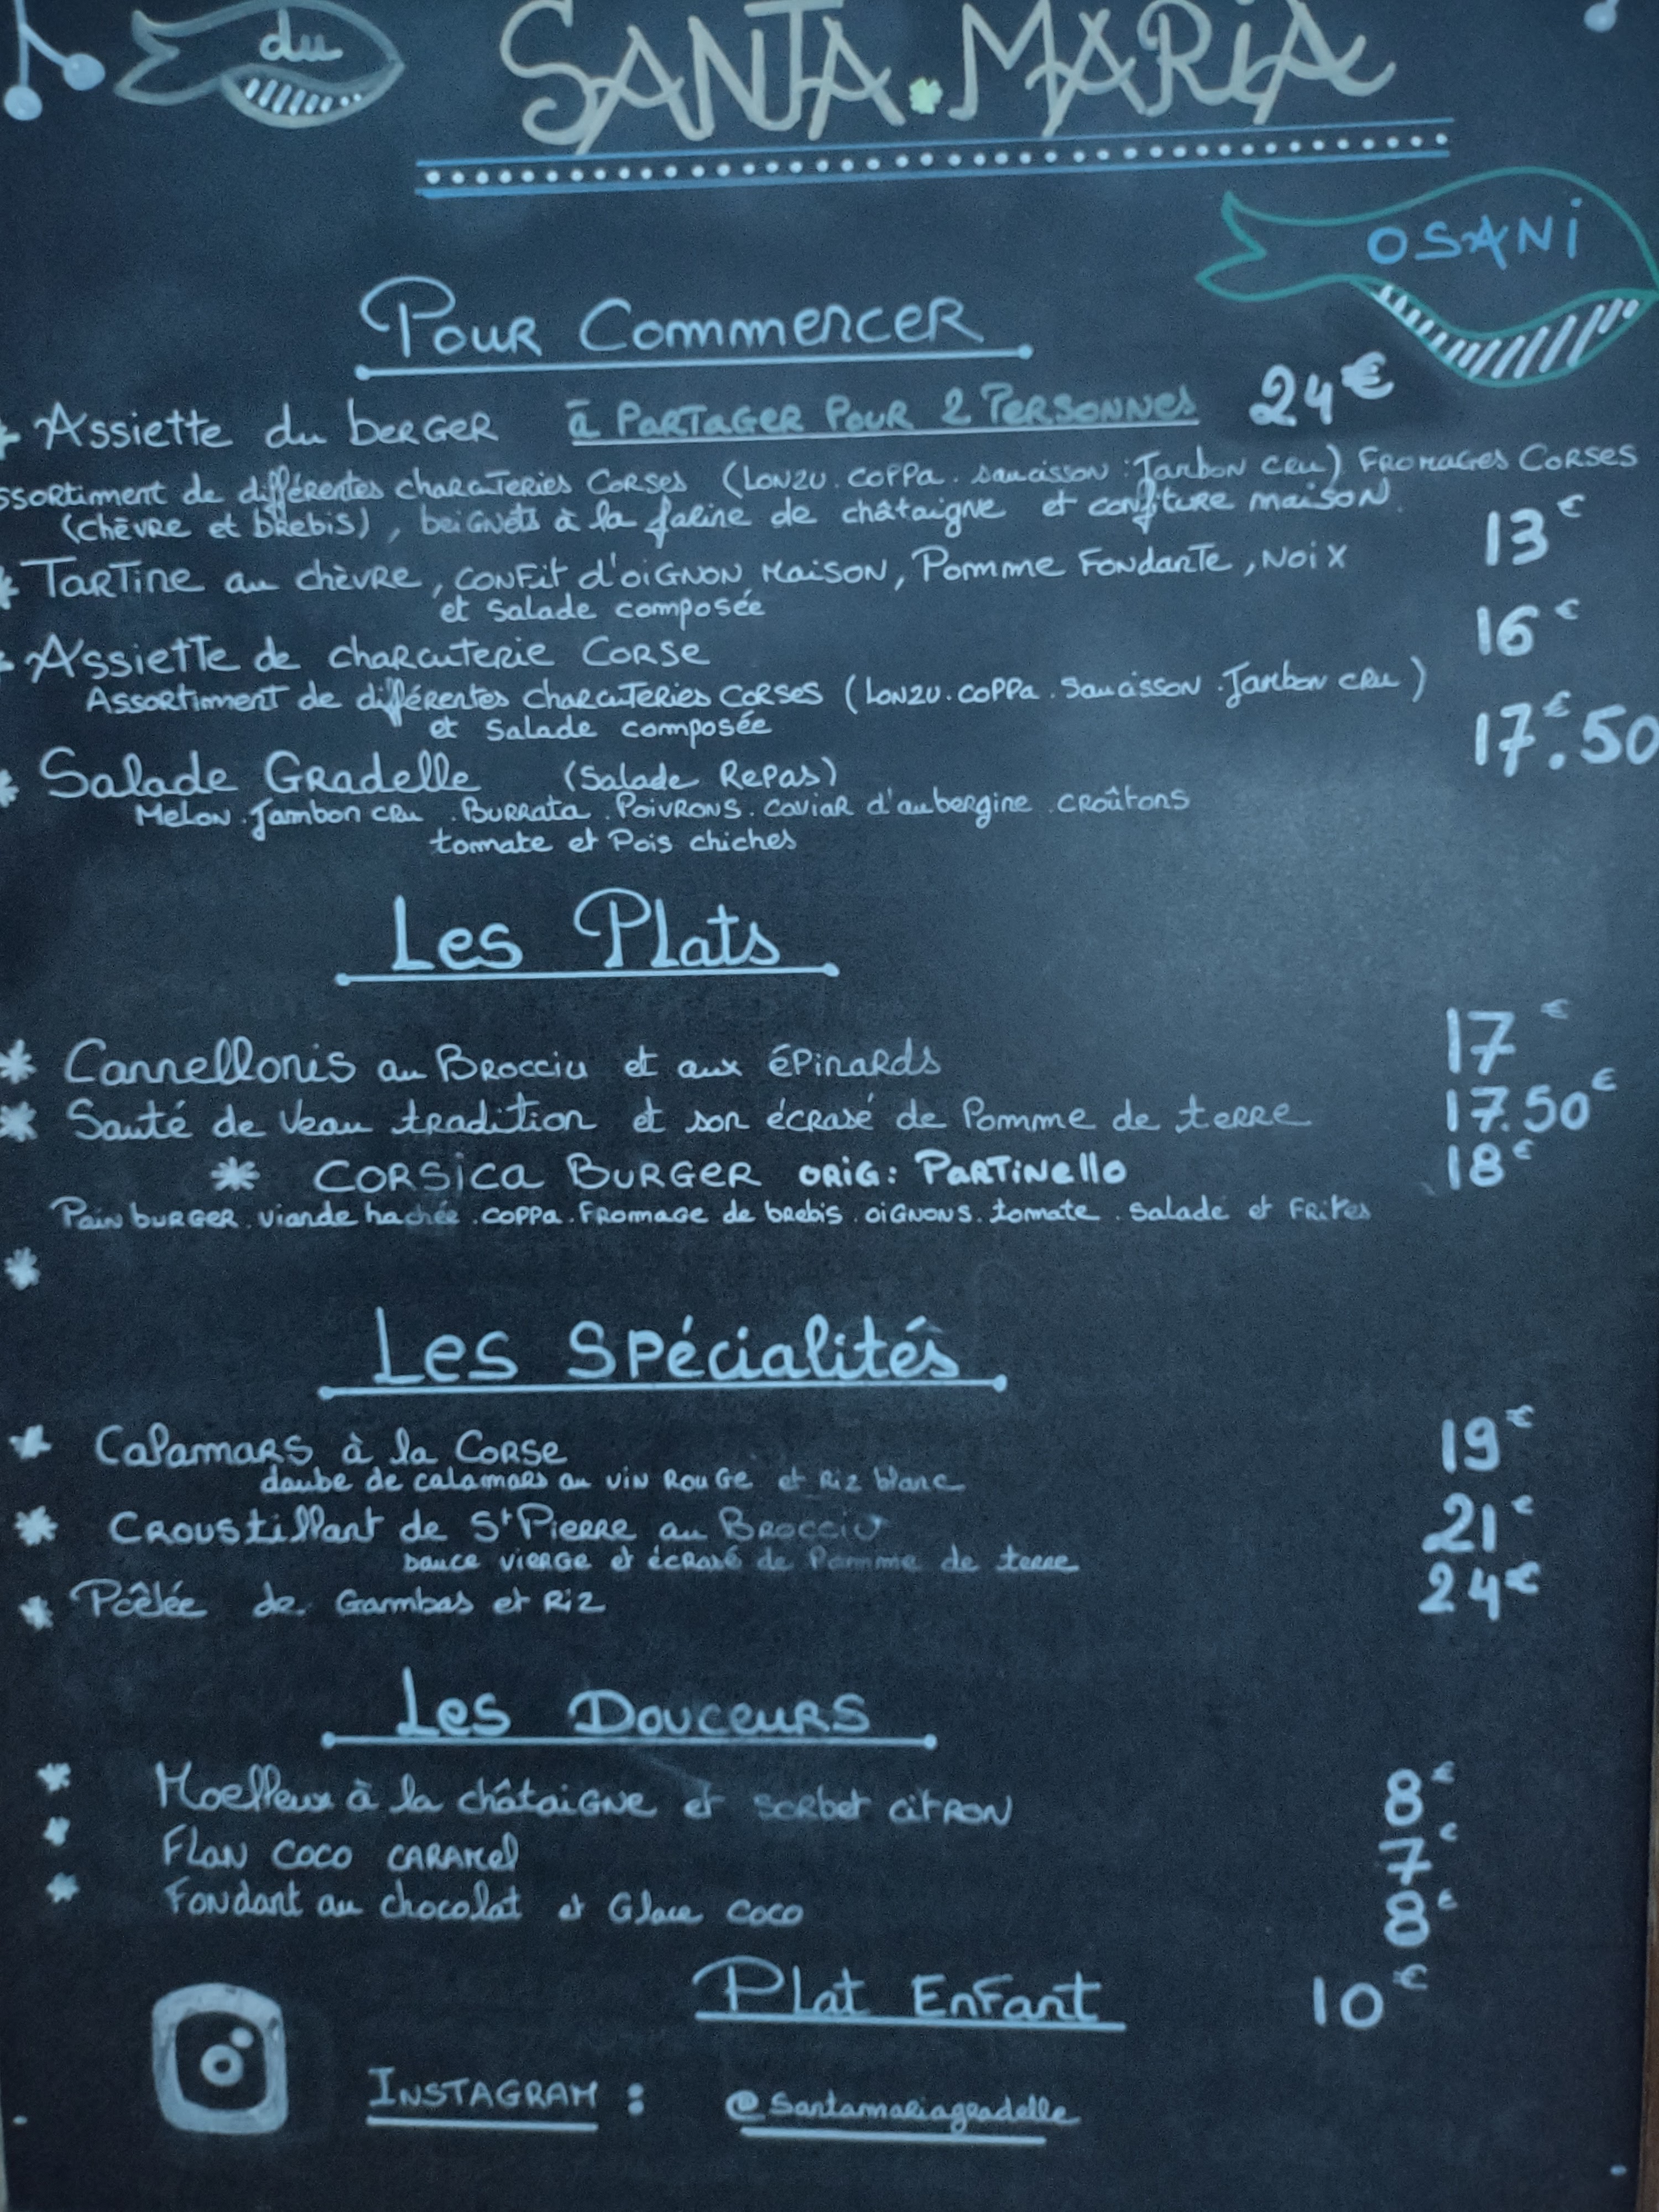 du
SANTA.MARIA
OSANI
Pour Commencer
Assiette du berger à Partager Pour 2 Personnes 24€
ssortiment de différentes charcuteries Corses (Lonzu. Coppa. saucisson. Jambon cru) Fromages Corses
(chèvre et brebis), beignets à la farine de châtaigne et confiture maison.
Tartine au chèvre, confit d'oignon Maison, Pomme Fondante, Noix 13€
et Salade composée
Assiette de charcuterie Corse 16€
Assortiment de différentes charcuteries Corses (Lonzu. Coppa. Saucisson. Jambon cru)
et Salade composée
Salade Gradelle (Salade Repas) 17€.50
Melon. Jambon cru. Burrata. Poivrons. Caviar d'aubergine. Croûtons
tomate et Pois chiches
Les Plats
* Cannellonis au Brocciu et aux épinards 17€
* Sauté de Veau tradition et son écrasé de Pomme de terre 17.50€
* Corsica Burger orig: Partinello 18€
Pain burger. viande hachée. coppa. Fromage de brebis. oignons. tomate. Salade et Frites
*
Les Spécialités
* Calamars à la Corse 19€
daube de calamars au vin Rouge et Riz blanc
* Croustillant de St Pierre au Brocciu 21€
sauce vierge et écrasé de Pomme de terre
* Poêlée de Gambas et Riz 24€
Les Douceurs
* Moelleux à la châtaigne et sorbet citron 8€
* Flan coco caramel 7€
* Fondant au chocolat et Glace coco 8€
Plat Enfant 10€
Instagram : @santamariagradelle